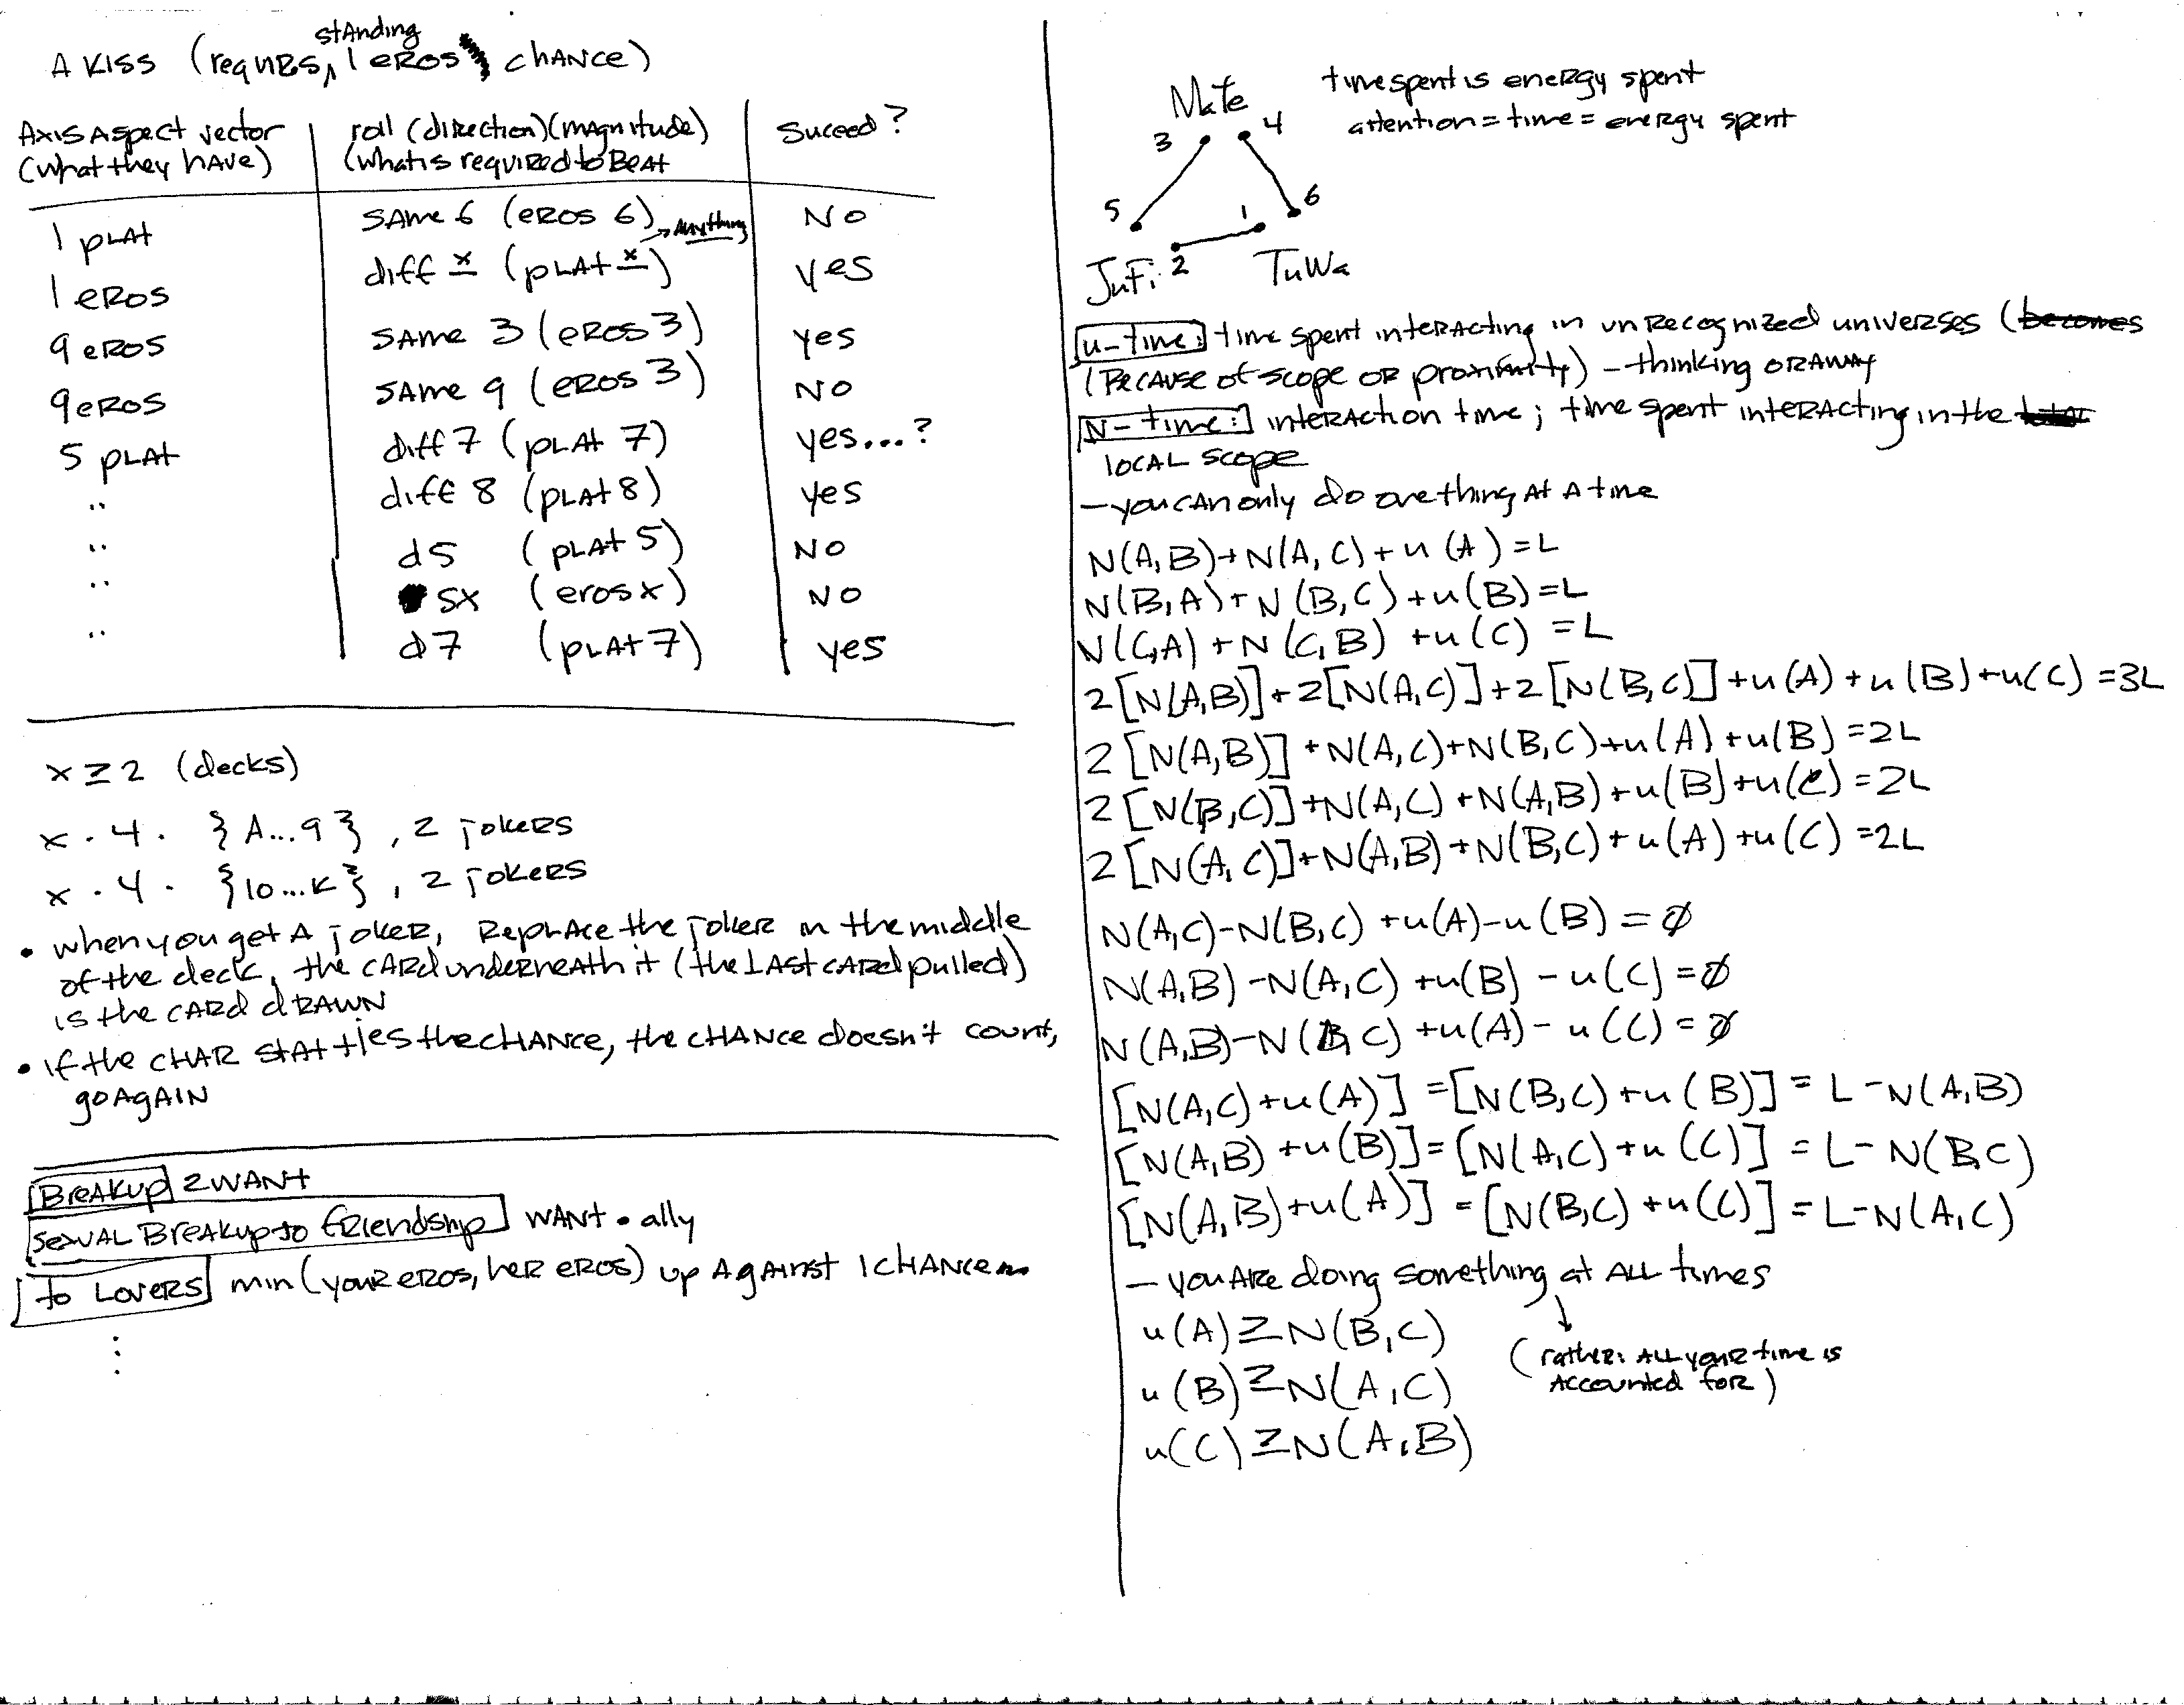 standing
A KISS (requires, 1 eros chance)
Axis Aspect vector
(what they have)
roll (direction)(magnitude)
(what is required to Beat
Suceed?
1 plat
same 6 (eros 6)
No
→ Anything
1 eros
diff x (plat x)
yes
9 eros
same 3 (eros 3)
yes
9 eros
same 9 (eros 3)
No
5 plat
diff 7 (plat 7)
yes...?
"
diff 8 (plat 8)
yes
"
d5 (plat 5)
No
"
sx (eros x)
No
"
d7 (plat 7)
yes
x ≥ 2 (decks)
x · 4 · {A...9}, 2 jokers
x · 4 · {10...K}, 2 jokers
• when you get A joker, Replace the joker in the middle
of the deck, the card underneath it (the last card pulled)
is the card drawn
• if the char stat ties the chance, the chance doesn't count,
go again
Breakup 2 want
sexual Breakup to friendship want • ally
to Lovers min(your eros, her eros) up against 1 chance
⋮
time spent is energy spent
attention = time = energy spent
MaTe
3 4
5 1 6
JuFi 2 TuWa
u-time: time spent interacting in unrecognized universes (becomes
(Because of scope or proximity) – thinking or away
N-time: interaction time; time spent interacting in the
local scope
– you can only do one thing at a time
N(A,B)+N(A,C)+u(A)=L
N(B,A)+N(B,C)+u(B)=L
N(C,A)+N(C,B)+u(C)=L
2[N(A,B)]+2[N(A,C)]+2[N(B,C)]+u(A)+u(B)+u(C)=3L
2[N(A,B)]+N(A,C)+N(B,C)+u(A)+u(B)=2L
2[N(B,C)]+N(A,C)+N(A,B)+u(B)+u(C)=2L
2[N(A,C)]+N(A,B)+N(B,C)+u(A)+u(C)=2L
N(A,C)-N(B,C)+u(A)-u(B)=∅
N(A,B)-N(A,C)+u(B)-u(C)=∅
N(A,B)-N(B,C)+u(A)-u(C)=∅
[N(A,C)+u(A)]=[N(B,C)+u(B)]=L-N(A,B)
[N(A,B)+u(B)]=[N(A,C)+u(C)]=L-N(B,C)
[N(A,B)+u(A)]=[N(B,C)+u(C)]=L-N(A,C)
– you are doing something at all times
↓
(rather: all your time is
accounted for)
u(A)≥N(B,C)
u(B)≥N(A,C)
u(C)≥N(A,B)